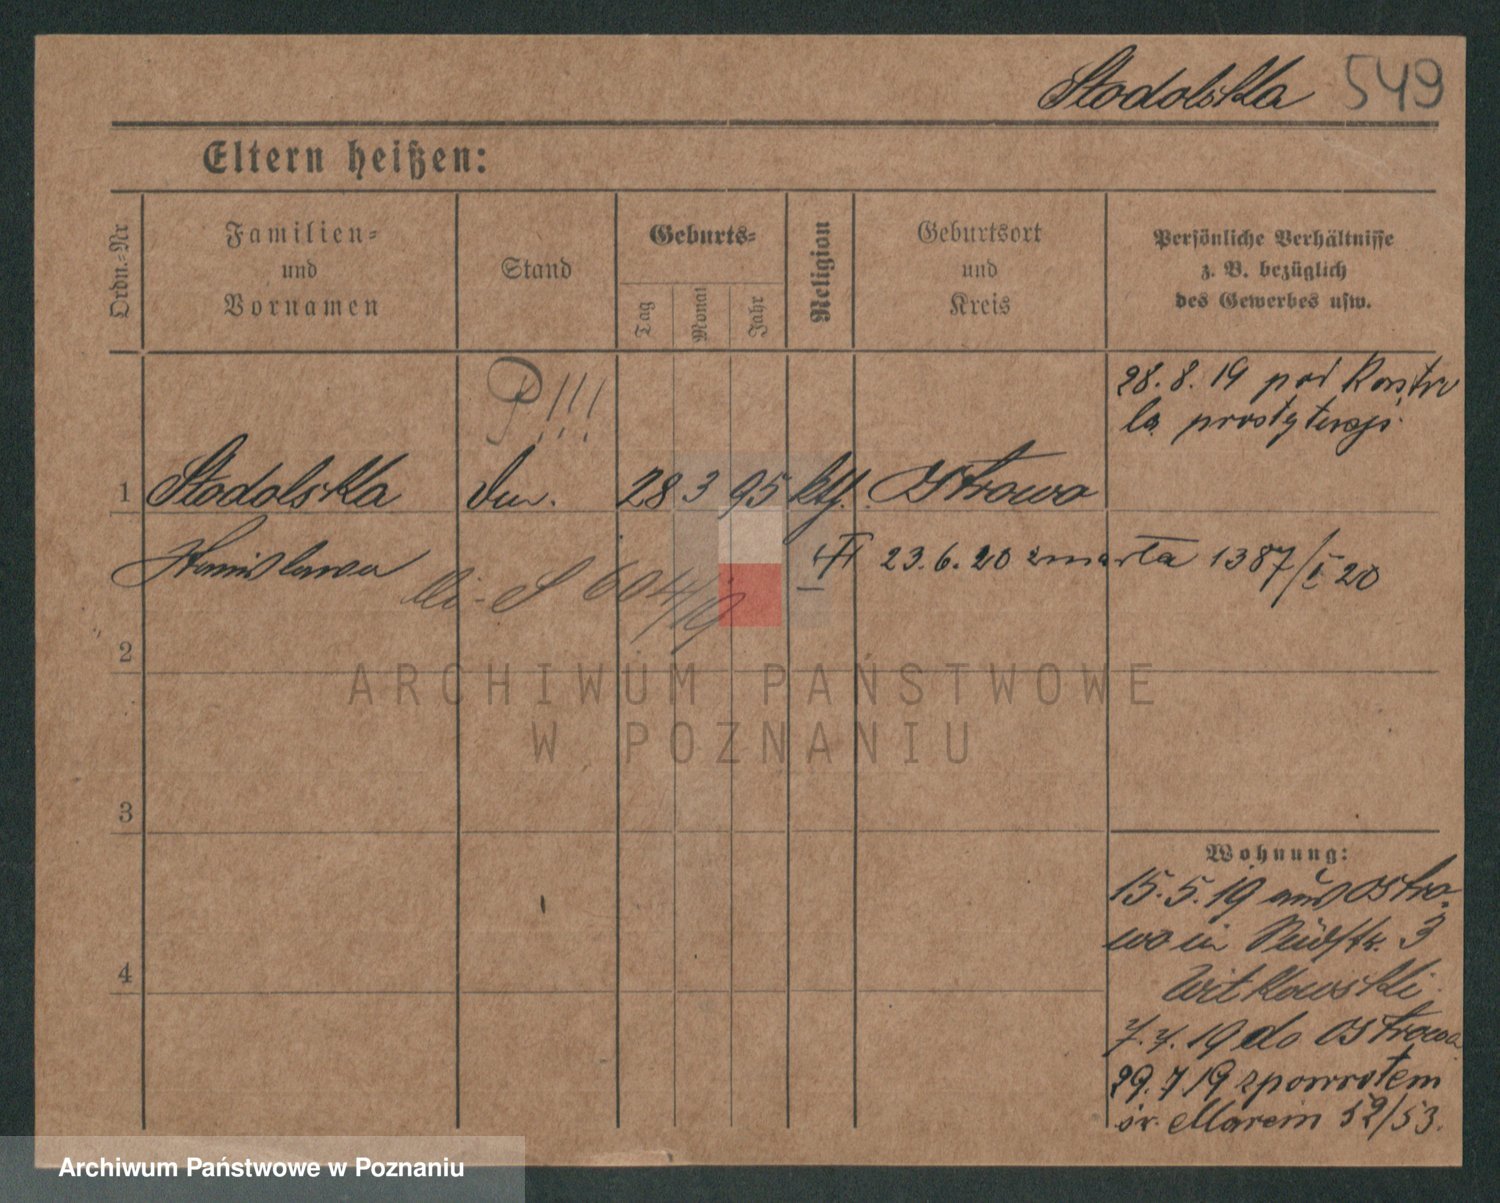 Stodolska 549
Eltern heißen:
Ordn.-Nr
Familien-
und
Vornamen
Stand
Geburts-
Tag
Monat
Jahr
Religion
Geburtsort
und
Kreis
Persönliche Verhältnisse
z. B. bezüglich
des Gewerbes usw.
P!!!
28.8.19 pod Kontro
la prostytucji
1 Stodolska 28 3 95 Ostrowo
Stanislawa
S 604/19
23.6.20 zmarła 1387/I 20
2
3
4
Wohnung:
15.5.19 aus Ostro-
wo in 3
Witkowski
7.7.19 do Ostrowa
29.7.19 zpowrotem
św. Marcin 52/53.
ARCHIWUM PAŃSTWOWE
W POZNANIU
Archiwum Państwowe w Poznaniu